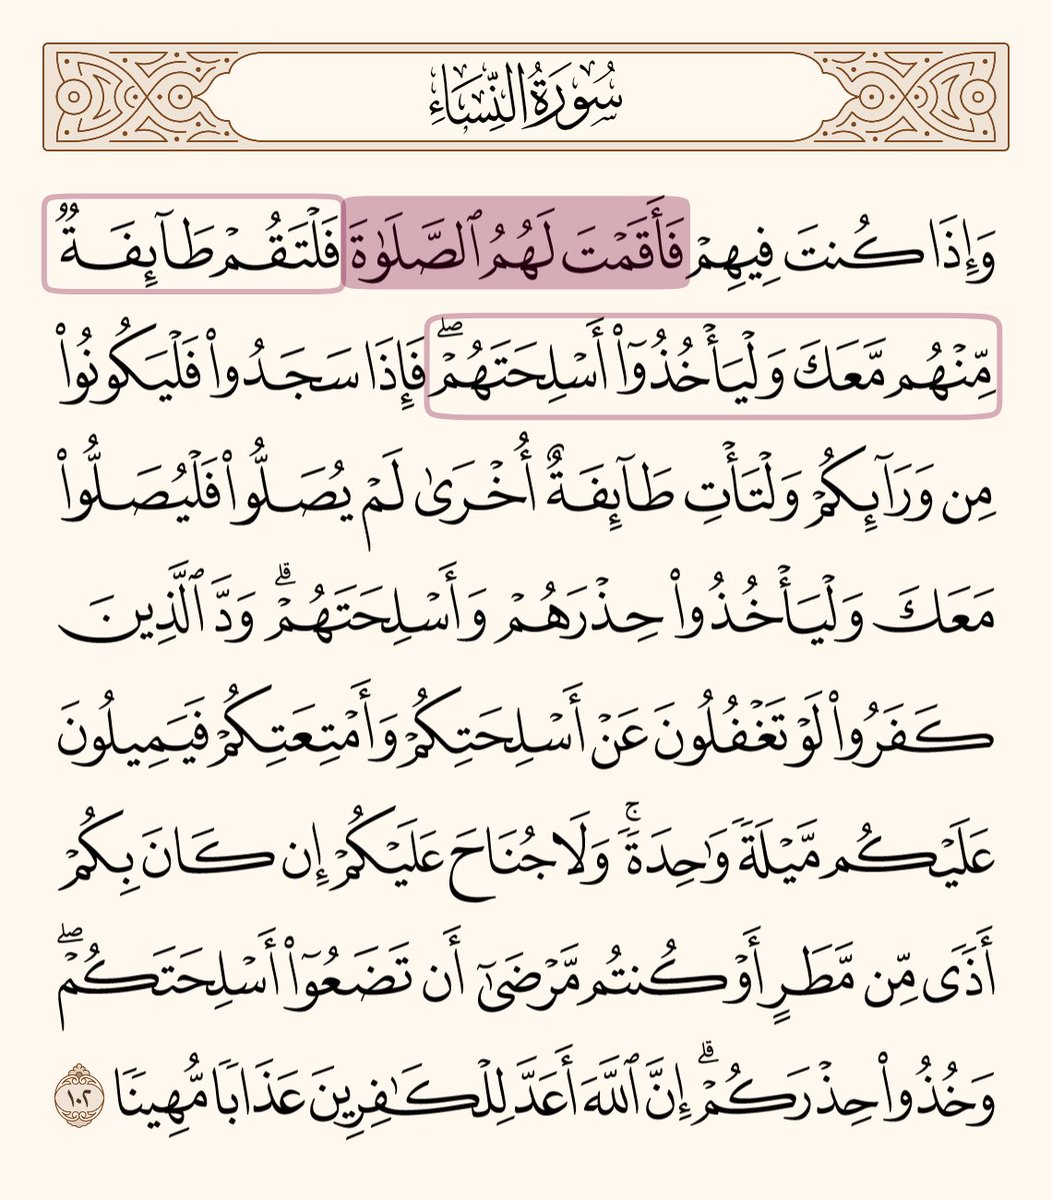 سُورَةُ النِّسَاءِ
وَإِذَا كُنتَ فِيهِمْ فَأَقَمْتَ لَهُمُ ٱلصَّلَوٰةَ فَلْتَقُمْ طَآئِفَةٌ
مِّنْهُم مَّعَكَ وَلْيَأْخُذُوٓا۟ أَسْلِحَتَهُمْ ۖ فَإِذَا سَجَدُوا۟ فَلْيَكُونُوا۟
مِن وَرَآئِكُمْ وَلْتَأْتِ طَآئِفَةٌ أُخْرَىٰ لَمْ يُصَلُّوا۟ فَلْيُصَلُّوا۟
مَعَكَ وَلْيَأْخُذُوا۟ حِذْرَهُمْ وَأَسْلِحَتَهُمْ ۗ وَدَّ ٱلَّذِينَ
كَفَرُوا۟ لَوْ تَغْفُلُونَ عَنْ أَسْلِحَتِكُمْ وَأَمْتِعَتِكُمْ فَيَمِيلُونَ
عَلَيْكُم مَّيْلَةً وَٰحِدَةً ۚ وَلَا جُنَاحَ عَلَيْكُمْ إِن كَانَ بِكُمْ
أَذًى مِّن مَّطَرٍ أَوْ كُنتُم مَّرْضَىٰٓ أَن تَضَعُوٓا۟ أَسْلِحَتَكُمْ ۖ
وَخُذُوا۟ حِذْرَكُمْ ۗ إِنَّ ٱللَّهَ أَعَدَّ لِلْكَـٰفِرِينَ عَذَابًا مُّهِينًا ١٠٢